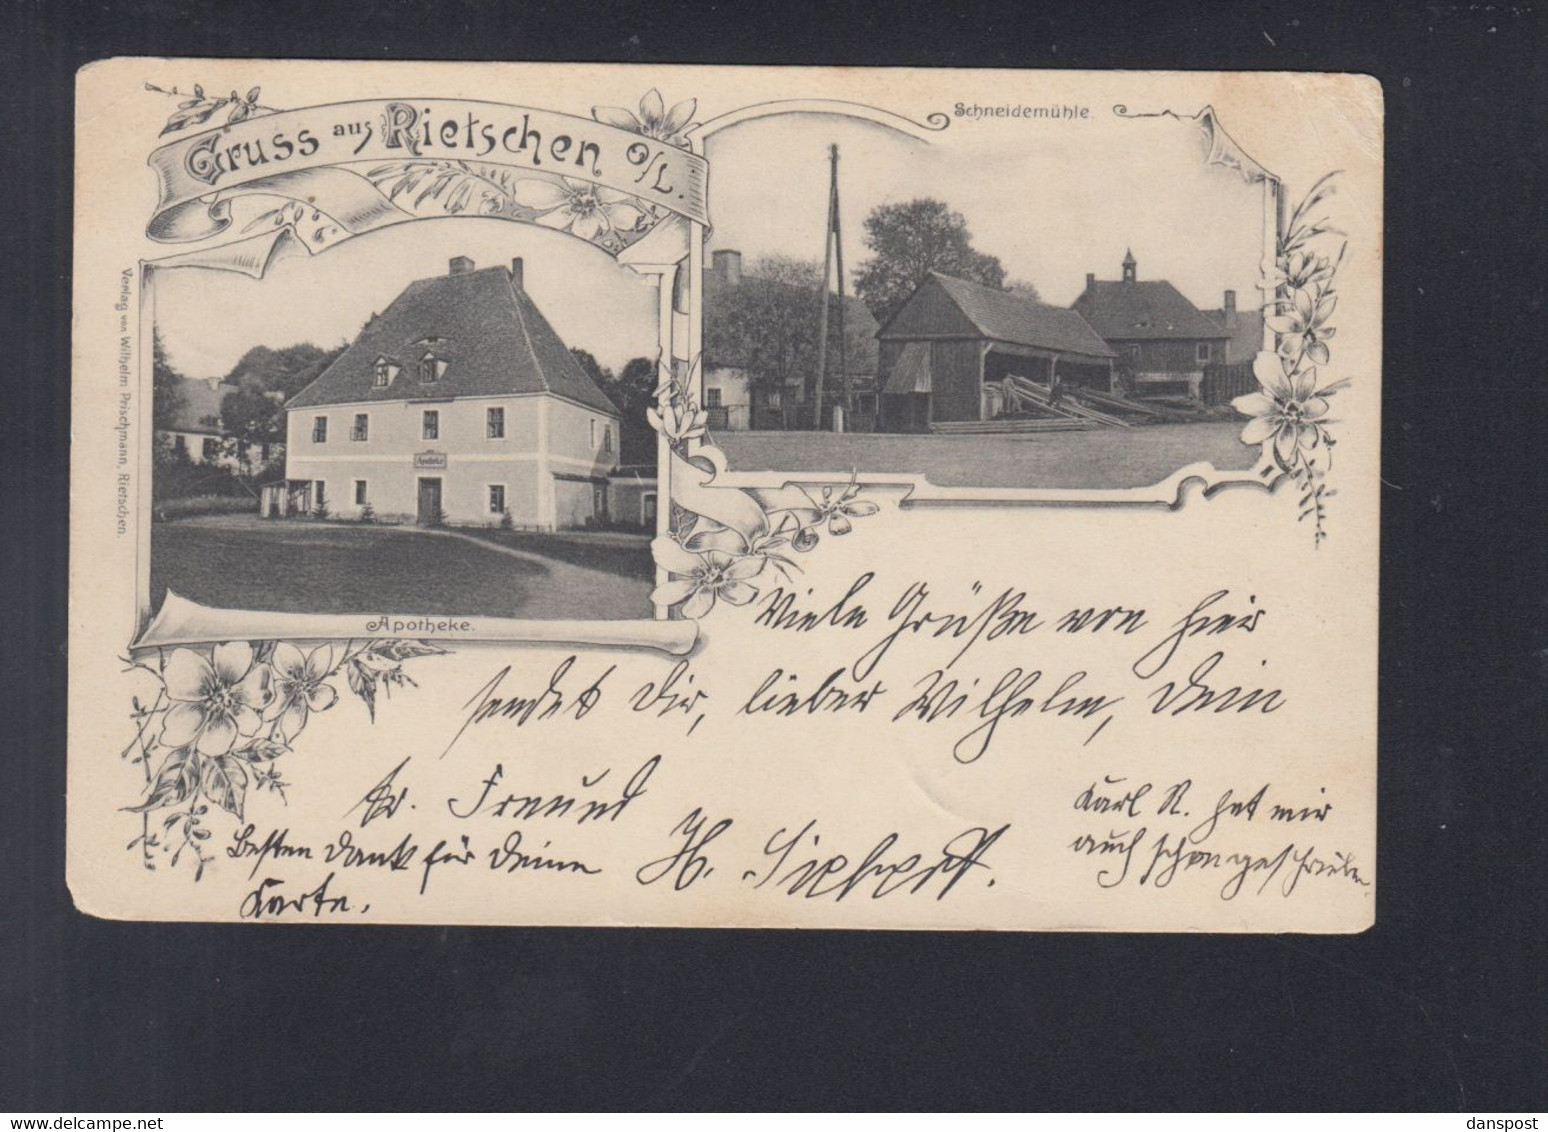 Gruss aus Rietschen O/L.
Schneidemühle.
Verlag von Wilhelm Prischmann, Rietschen.
Apotheke
Apotheke.
Viele Grüße von hier
sendet Dir, lieber Wilhelm, Dein
tr. Freund H.
Besten Dank für Deine
Karte.
Karl R. hat mir
auch schon geschrieben.
www.delcampe.net
danspost